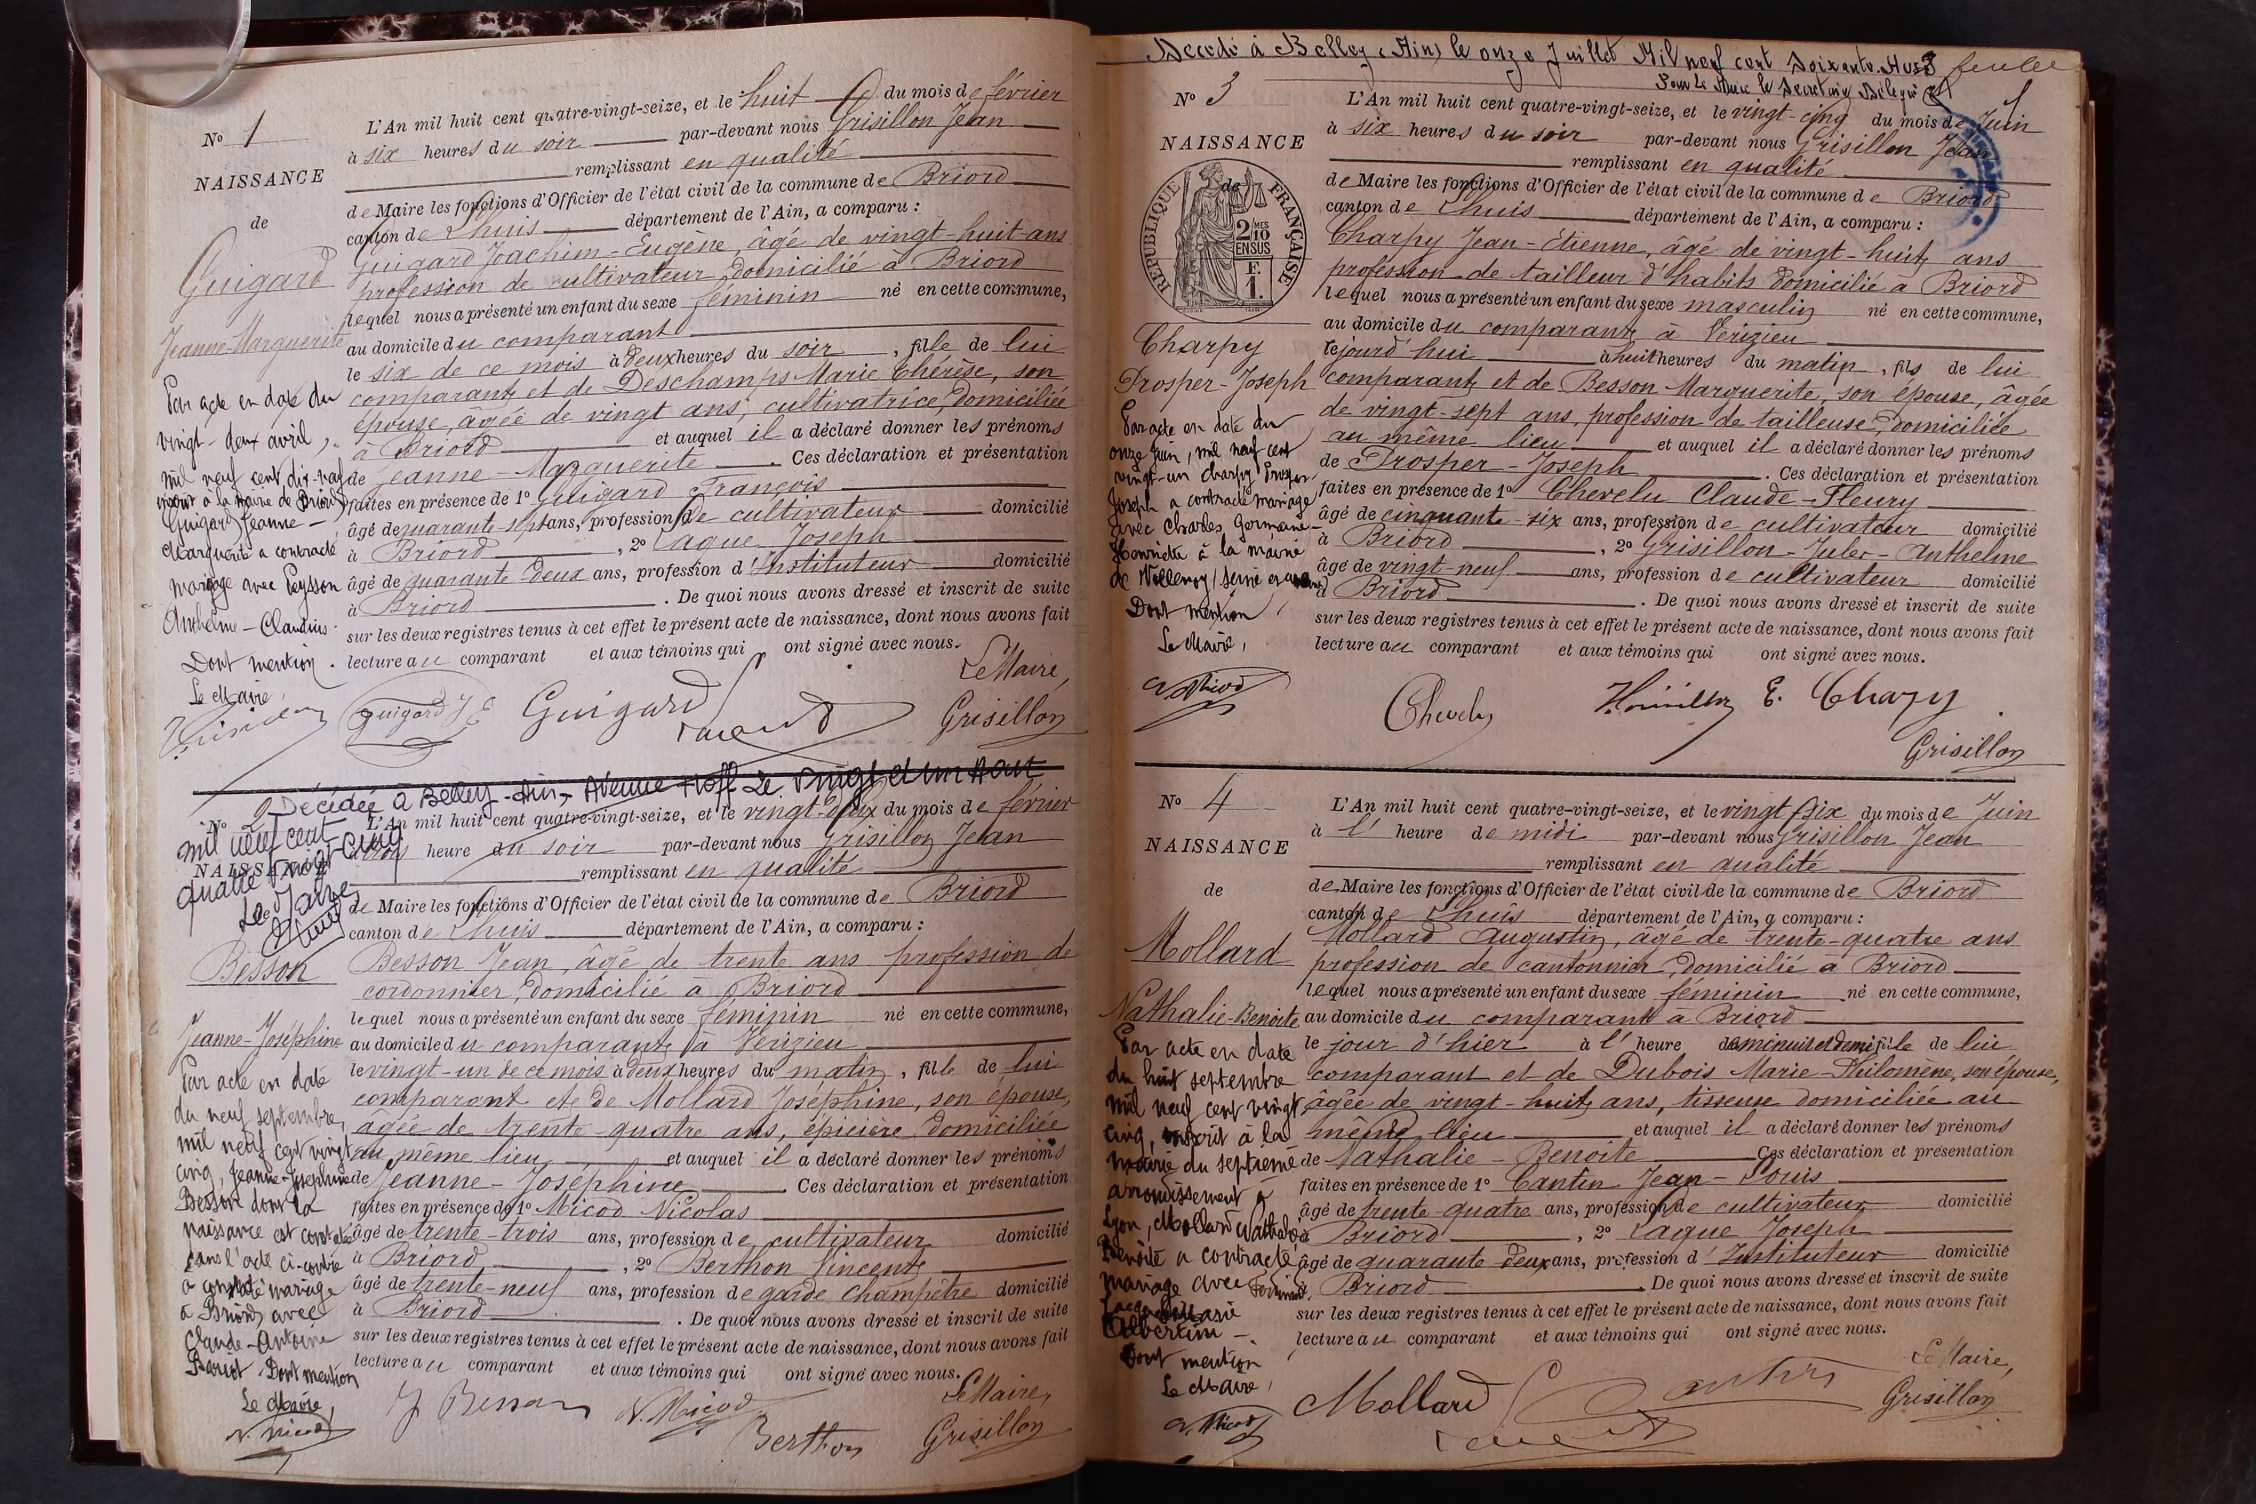 No 1
NAISSANCE
de
Guigard
Jeanne-Marguerite
Par acte en date du
vingt-deux avril,
mil neuf cent dix-neuf
inscrit à la mairie de Briord
Guigard Jeanne-
Marguerite a contracté
mariage avec Peysson
Anthelme-Claudius.
Dont mention.
Le Maire,
L'An mil huit cent quatre-vingt-seize, et le huit du mois de février
à six heures du soir par-devant nous Grisillon Jean
remplissant en qualité
de Maire les fonctions d'Officier de l'état civil de la commune de Briord
canton de Lhuis département de l'Ain, a comparu :
Guigard Joachim-Eugène, âgé de vingt-huit ans
profession de cultivateur domicilié à Briord
lequel nous a présenté un enfant du sexe féminin né en cette commune,
au domicile du comparant
le six de ce mois à deux heures du soir, fille de lui
comparant et de Deschamps Marie Thérèse, son
épouse, âgée de vingt ans, cultivatrice, domiciliée
à Briord et auquel il a déclaré donner les prénoms
de Jeanne-Marguerite. Ces déclaration et présentation
faites en présence de 1o Guigard François
âgé de quarante-sept ans, profession de cultivateur domicilié
à Briord, 2o Laque Joseph
âgé de quarante deux ans, profession d'Instituteur domicilié
à Briord. De quoi nous avons dressé et inscrit de suite
sur les deux registres tenus à cet effet le présent acte de naissance, dont nous avons fait
lecture au comparant et aux témoins qui ont signé avec nous.
Le Maire,
Guigard J E Guigard Grisillon
Décédée à Belley-Ain, Avenue Hoff le vingt et un Août
mil neuf cent
quatre vingt cinq
Le Maire
No 2
NAISSANCE
Besson
Jeanne-Joséphine
Par acte en date
du neuf septembre,
mil neuf cent vingt
cinq, Jeanne-Joséphine
Besson dont la
naissance est constatée
dans l'acte ci-contre
a contracté mariage
à Briord avec
Claude-Antoine
Dont mention
Le Maire,
N. Micod
L'An mil huit cent quatre-vingt-seize, et le vingt-deux du mois de février
à trois heure du soir par-devant nous Grisillon Jean
remplissant en qualité
de Maire les fonctions d'Officier de l'état civil de la commune de Briord
canton de Lhuis département de l'Ain, a comparu :
Besson Jean, âgé de trente ans profession de
cordonnier, domicilié à Briord
lequel nous a présenté un enfant du sexe féminin né en cette commune,
au domicile du comparant, à Vérizieu
le vingt-un de ce mois à deux heures du matin, fille de lui
comparant et de Mollard Joséphine, son épouse,
âgée de trente-quatre ans, épicière domiciliée
au même lieu et auquel il a déclaré donner les prénoms
de Jeanne-Joséphine. Ces déclaration et présentation
faites en présence de 1o Micod Nicolas
âgé de trente-trois ans, profession de cultivateur domicilié
à Briord, 2o Berthon Vincent
âgé de trente-neuf ans, profession de garde champêtre domicilié
à Briord. De quoi nous avons dressé et inscrit de suite
sur les deux registres tenus à cet effet le présent acte de naissance, dont nous avons fait
lecture au comparant et aux témoins qui ont signé avec nous.
Le Maire,
J Besson N. Micod Berthon Grisillon
Décédé à Belley (Ain) le onze Juillet Mil neuf cent Soixante
Pour le Maire le Secrétaire Délégué
No 3
NAISSANCE
de
RÉPUBLIQUE FRANÇAISE
2/10 MES
EN SUS
F.
1.
Charpy
Prosper-Joseph
Par acte en date du
onze juin, mil neuf cent
vingt-un Charpy Prosper
Joseph a contracté mariage
avec Charles Germaine-
Henriette à la mairie
de
Dont mention,
Le Maire,
N. Micod
L'An mil huit cent quatre-vingt-seize, et le vingt-cinq du mois de Juin
à six heures du soir par-devant nous Grisillon Jean
remplissant en qualité
de Maire les fonctions d'Officier de l'état civil de la commune de Briord
canton de Lhuis département de l'Ain, a comparu :
Charpy Jean-Etienne, âgé de vingt-huit ans
profession de tailleur d'habits domicilié à Briord
lequel nous a présenté un enfant du sexe masculin né en cette commune,
au domicile du comparant, à Vérizieu
le jourd'hui à huit heures du matin, fils de lui
comparant et de Besson Marguerite, son épouse, âgée
de vingt-sept ans, profession de tailleuse, domiciliée
au même lieu et auquel il a déclaré donner les prénoms
de Prosper-Joseph. Ces déclaration et présentation
faites en présence de 1o Chevelu Claude-Fleury
âgé de cinquante-six ans, profession de cultivateur domicilié
à Briord, 2o Grisillon-Jules-Anthelme
âgé de vingt-neuf ans, profession de cultivateur domicilié
à Briord. De quoi nous avons dressé et inscrit de suite
sur les deux registres tenus à cet effet le présent acte de naissance, dont nous avons fait
lecture au comparant et aux témoins qui ont signé avec nous.
Chevelu E. Charpy
Grisillon
No 4
NAISSANCE
de
Mollard
Nathalie-Benoite
Par acte en date
du huit septembre
mil neuf cent vingt
cinq, inscrit à la
mairie du septième
arrondissement à
Lyon, Mollard Nathalie
Benoîte a contracté
mariage avec
Albertin
Dont mention
Le Maire,
N. Micod
L'An mil huit cent quatre-vingt-seize, et le vingt six du mois de Juin
à l' heure de midi par-devant nous Grisillon Jean
remplissant en qualité
de Maire les fonctions d'Officier de l'état civil de la commune de Briord
canton de Lhuis département de l'Ain, a comparu :
Mollard Augustin, âgé de trente-quatre ans
profession de cantonnier, domicilié à Briord
lequel nous a présenté un enfant du sexe féminin né en cette commune,
au domicile du comparant à Briord
le jour d'hier à l' heure de minuit et demi fille de lui
comparant et de Dubois Marie-Philomène, son épouse,
âgée de vingt-huit ans, tisseuse domiciliée au
même lieu et auquel il a déclaré donner les prénoms
de Nathalie-Benoite Ces déclaration et présentation
faites en présence de 1o Cantin Jean-Louis
âgé de trente-quatre ans, profession de cultivateur domicilié
à Briord, 2o Laque Joseph
âgé de quarante deux ans, profession d'Instituteur domicilié
à Briord. De quoi nous avons dressé et inscrit de suite
sur les deux registres tenus à cet effet le présent acte de naissance, dont nous avons fait
lecture au comparant et aux témoins qui ont signé avec nous.
Le Maire,
Mollard Cantin Grisillon